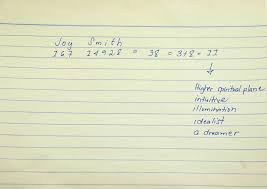 Joy Smith
167 14928 = 38 = 3+8 = 11
↓
Higher spiritual plane
intuitive
illumination
idealist
a dreamer